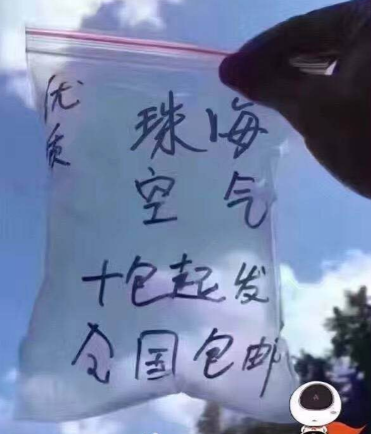 优质
珠海
空气
十包起发
全国包邮